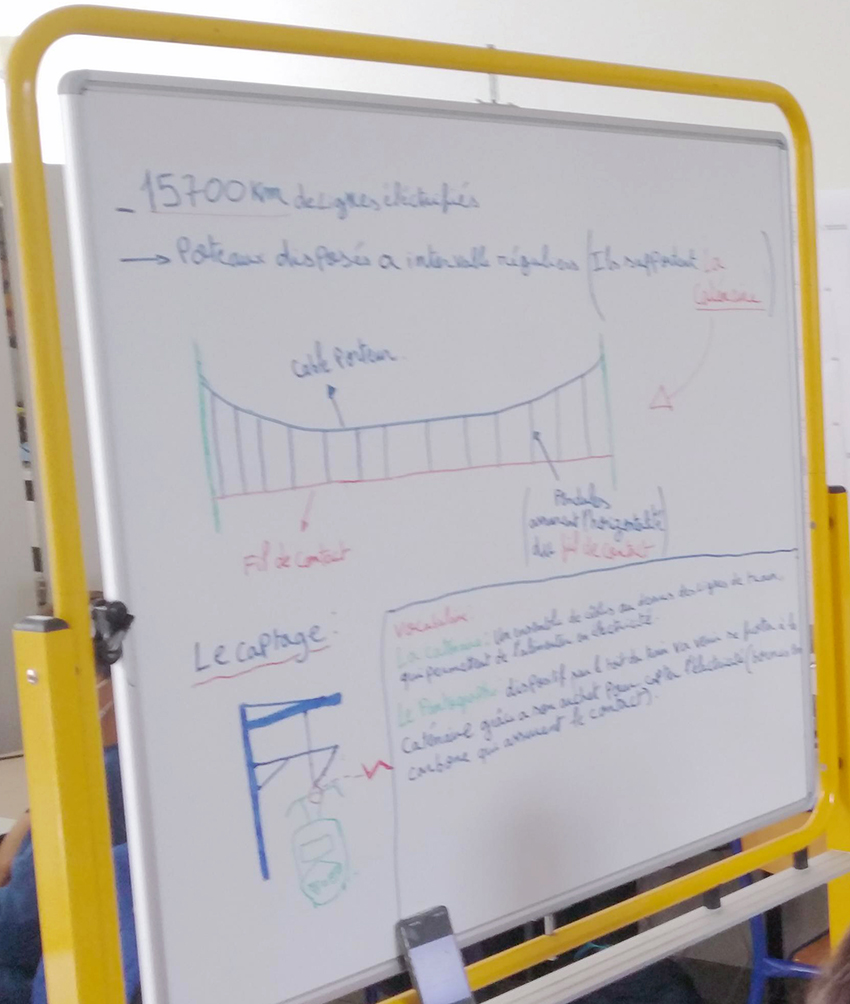 - 15700 Km de lignes éléctrifiés
→ Poteaux disposés a intervalle réguliers (Ils supportent la
caténaire)
Cable Porteur.
Pendules
(assurent l'horizontalité
du fil de contact)
Fil de contact
Le captage :
Vocabulaire :
La caténaire : Un ensemble de câbles au dessus des lignes de train
qui permettent de l'alimenter en électricité.
Le Pantographe : dispositif sur l toit du train va venir se frotter à la
caténaire grâce a son archet pour capter l'éléctricité (
carbone qui assurent le contact).